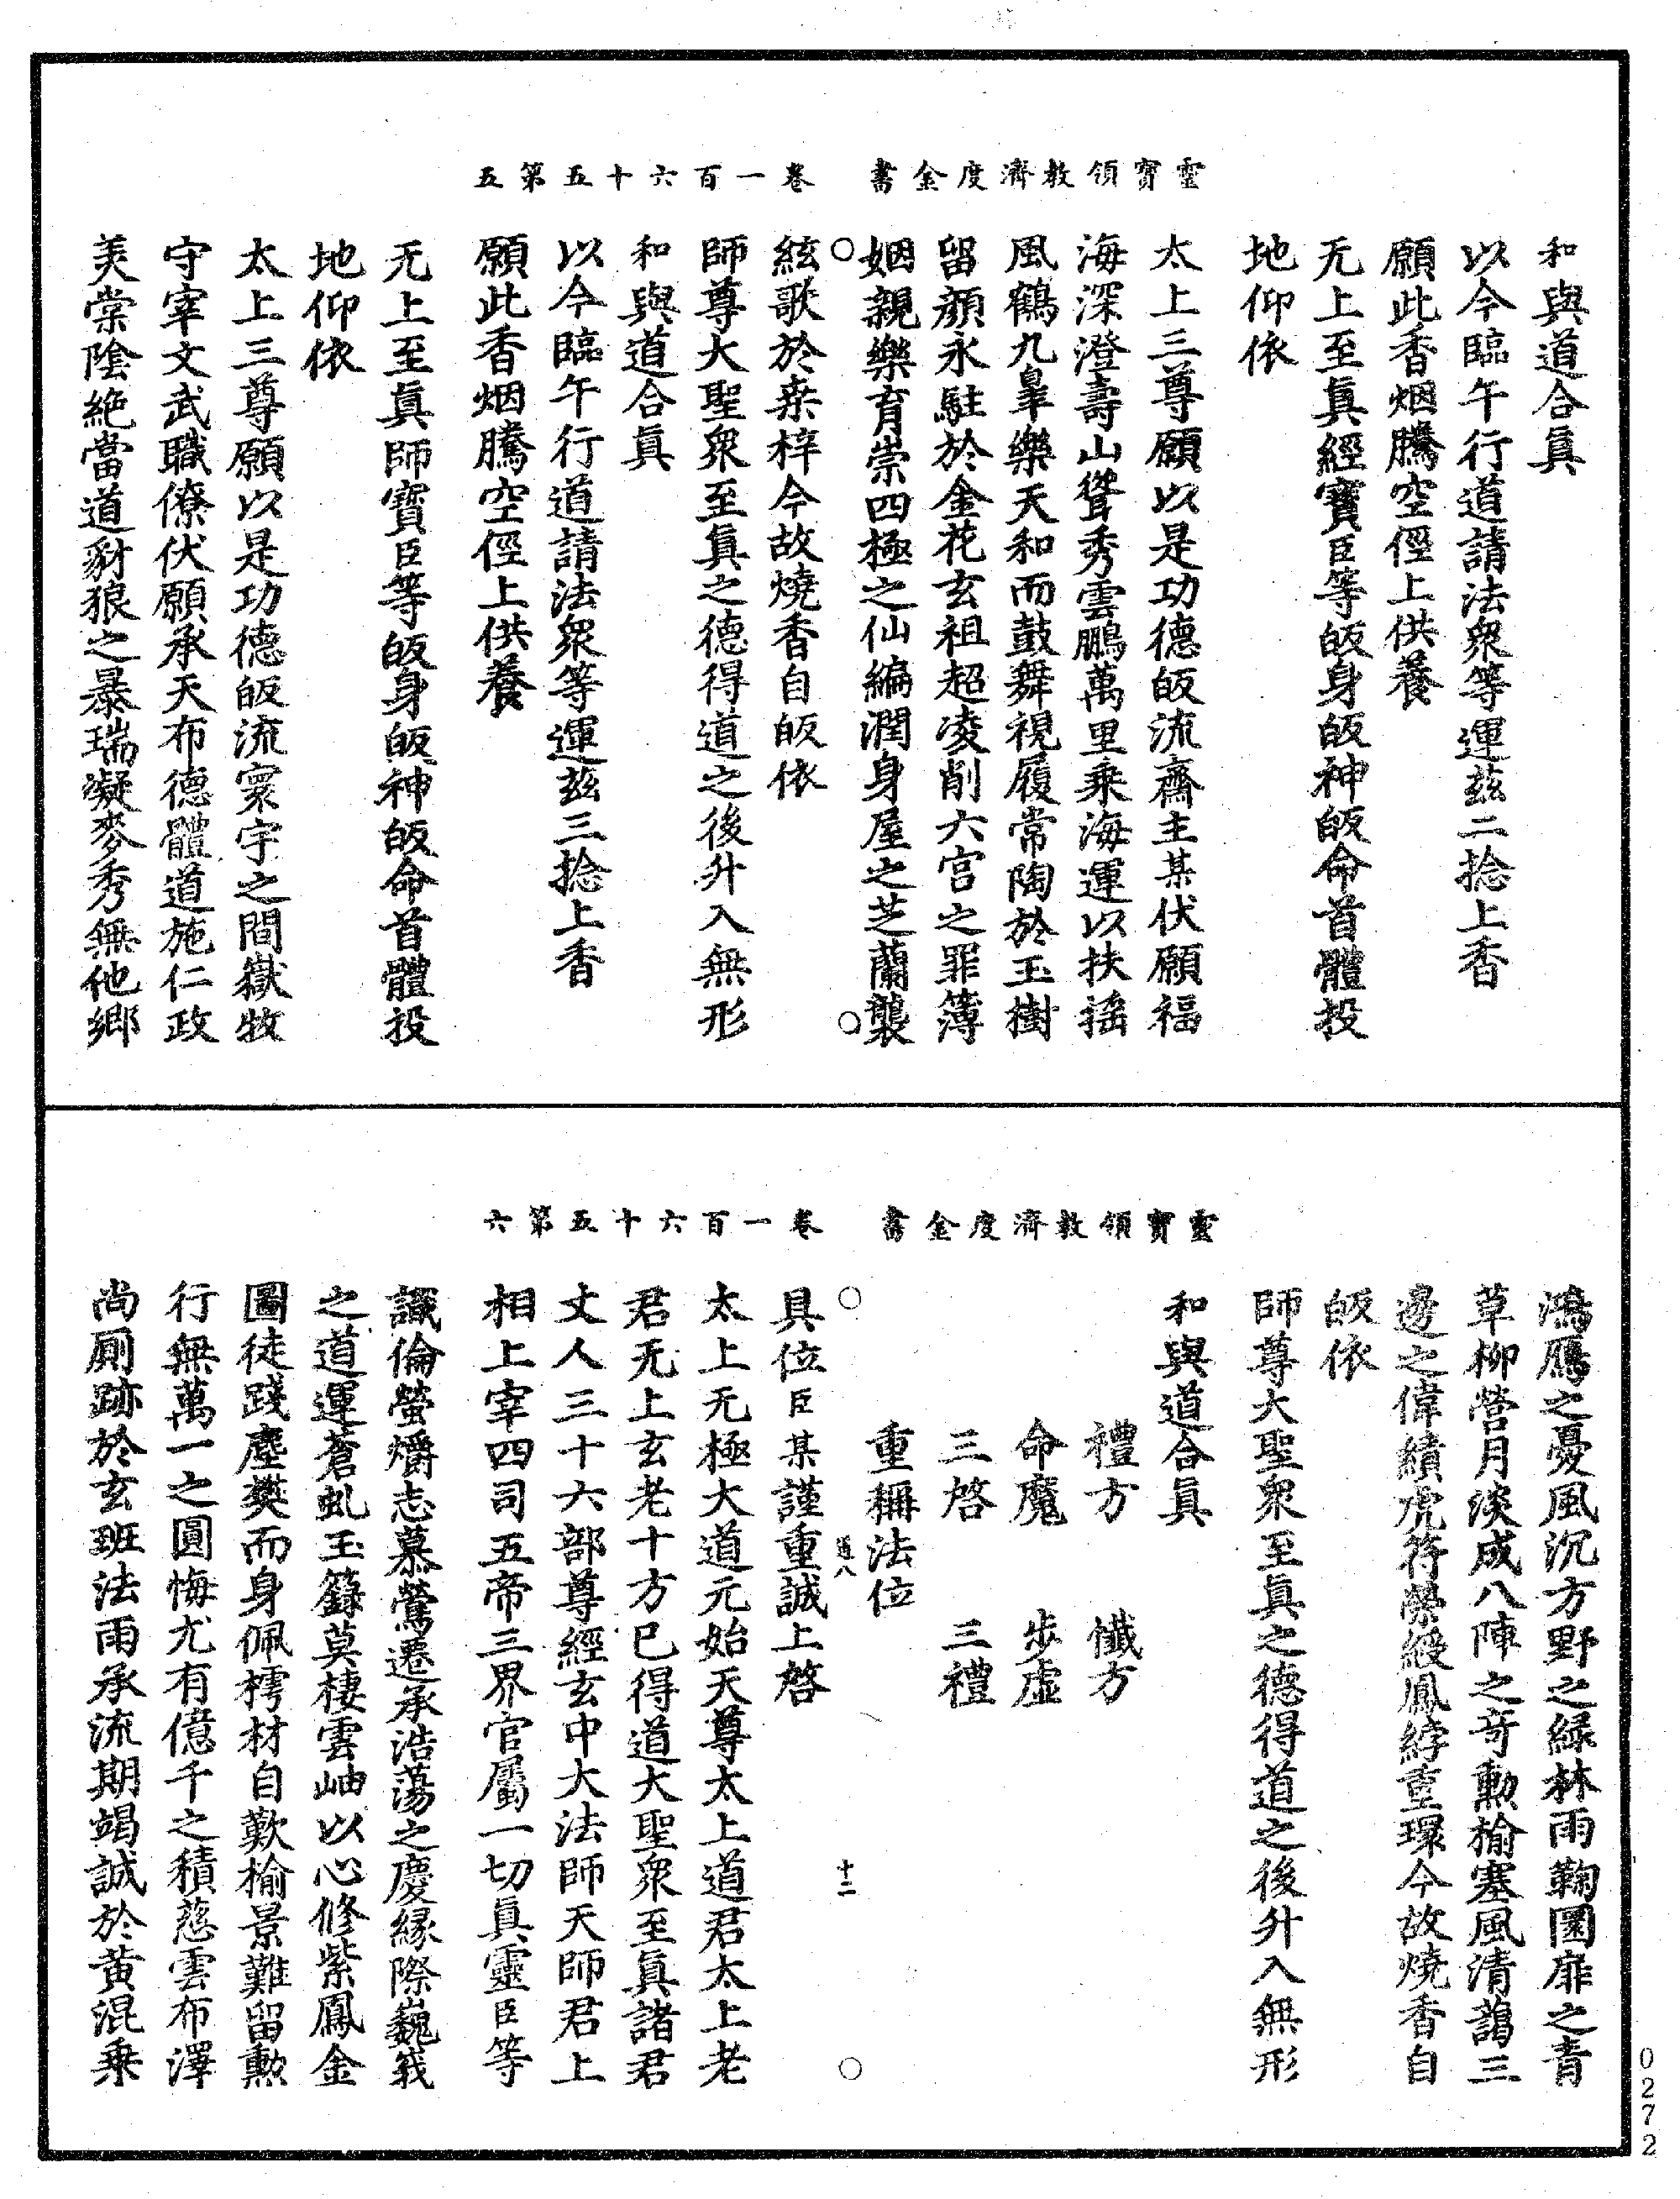 靈寶領教濟度金書　卷一百六十五第五
和與道合眞
以今臨午行道請法衆等運茲二捻上香
願此香烟騰空徑上供養
无上至眞經寶臣等皈身皈神皈命首體投
地仰依
太上三尊願以是功德皈流齋主某伏願福
海深澄壽山聳秀雲鵬萬里乘海運以扶搖
風鶴九臯樂天和而鼓舞視履常陶於玉樹
留顏永駐於金花玄祖超凌削六宮之罪簿
姻親樂育崇四極之仙編潤身屋之芝蘭襲
絃歌於桒梓今故燒香自皈依
師尊大聖衆至眞之德得道之後升入無形
和與道合眞
以今臨午行道請法衆等運茲三捻上香
願此香烟騰空徑上供養
无上至眞師寶臣等皈身皈神皈命首體投
地仰依
太上三尊願以是功德皈流寰宇之間嶽牧
守宰文武職僚伏願承天布德體道施仁政
美棠陰絶當道豺狼之暴瑞凝麥秀無他鄉
靈寶領教濟度金書　卷一百六十五第六
鴻鴈之憂風沉方野之緑林雨鞠圜扉之青
草柳營月淡成八陣之奇勳榆塞風清藹三
邊之偉績虎符榮綬鳳綍重環今故燒香自
皈依
師尊大聖衆至眞之德得道之後升入無形
和與道合眞
禮方　懺方
命魔　步虛
三啓　三禮
重稱法位
道八　十二
具位臣某謹重誠上啓
太上无極大道元始天尊太上道君太上老
君无上玄老十方已得道大聖衆至眞諸君
丈人三十六部尊經玄中大法師天師君上
相上宰四司五帝三界官屬一切眞靈臣等
識倫螢爝志慕鶯遷承浩蕩之慶緣際巍峩
之道運蒼虬玉籙莫棲雲岫以心修紫鳳金
圖徒踐塵樊而身佩樗材自歎榆景難留勲
行無萬一之圓悔尤有億千之積慈雲布澤
尚厠跡於玄班法雨承流期竭誠於黃混乗
0272